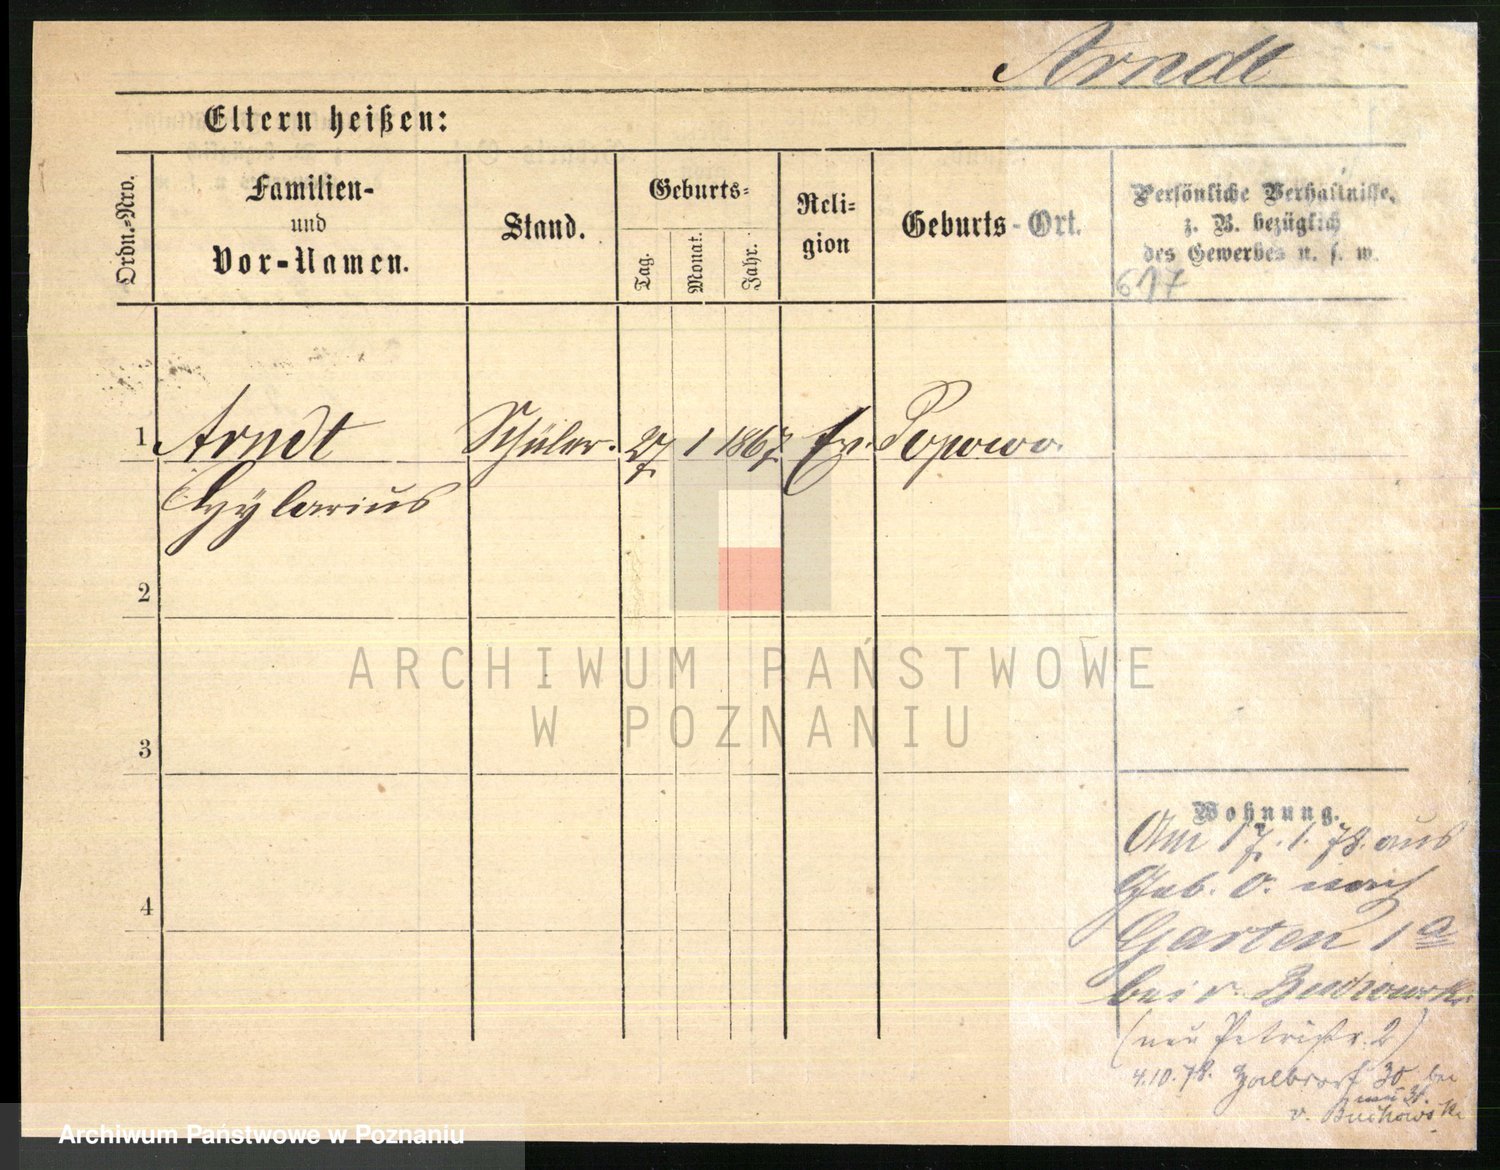 Arndt
Eltern heißen:
Ordn.-Nro.
Familien-
und
Vor-Namen.
Stand.
Geburts-
Tag.
Monat.
Jahr.
Reli-
gion
Geburts-Ort.
Persönliche Verhältnisse,
z. B. bezüglich
des Gewerbes u. s. w.
617
1 Arndt Schüler. 27 1 1867 Ev. Popowo.
Hylarius
2
3
4
ARCHIWUM PAŃSTWOWE
W POZNANIU
Wohnung.
Am 17.1.78. aus
Geb. O. nach
Garten 1 a
bei v. Buchowski
(neu Petristr. 2)
4.10.78. Halbdorf 30 bei
neu 31.
v. Buchowski
Archiwum Państwowe w Poznaniu